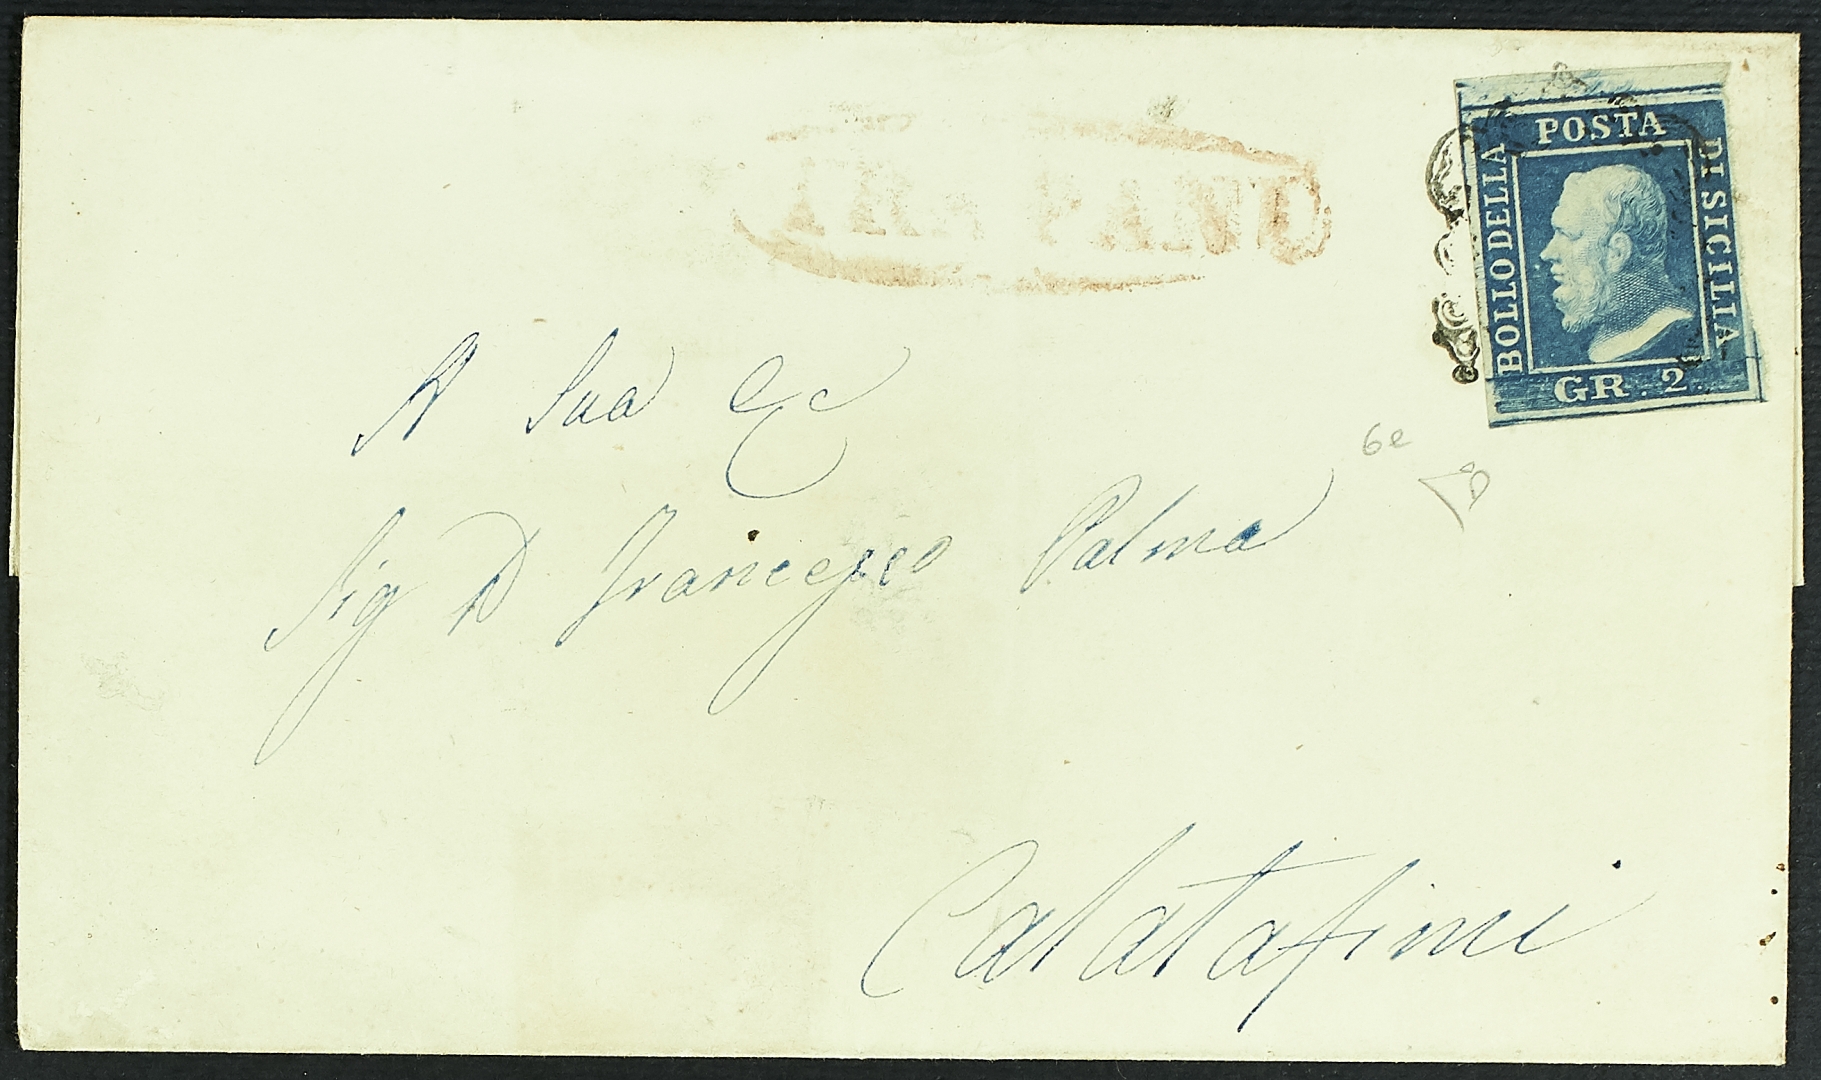 POSTA
BOLLO DELLA
DI SICILIA
GR. 2
A Sua Ec
6e
Sig D Francesco Palma
Calatafimi